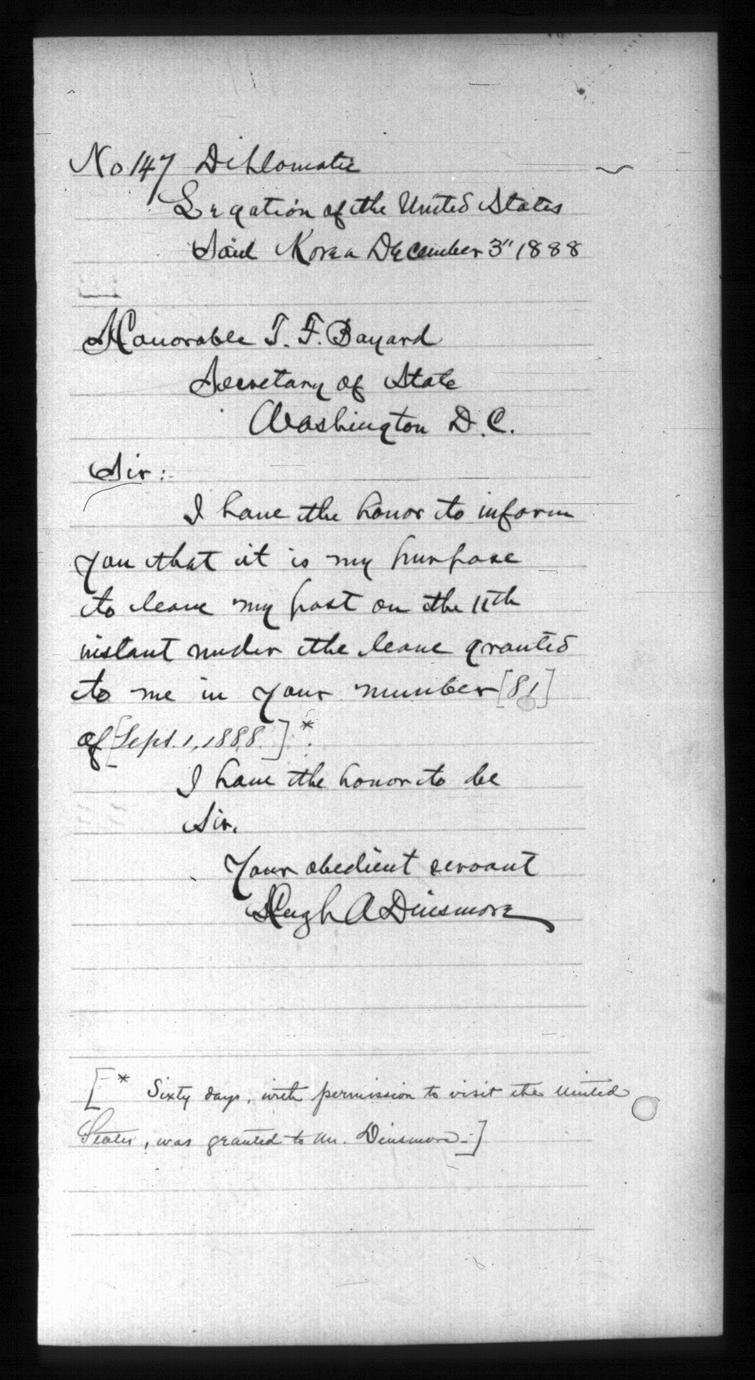 No 147 Diplomatic
Legation of the United States
Söul Korea December 3" 1888
Honorable T. F. Bayard
Secretary of State
Washington D.C.
Sir:
I have the honor to inform
you that it is my purpose
to leave my post on the 11th
instant under the leave granted
to me in your number [81]
of [Sept. 1, 1888.]*.
I have the honor to be
Sir,
Your obedient servant
Hugh A Dinsmore
[* Sixty days, with permission to visit the United
States, was granted to Mr. Dinsmore.]